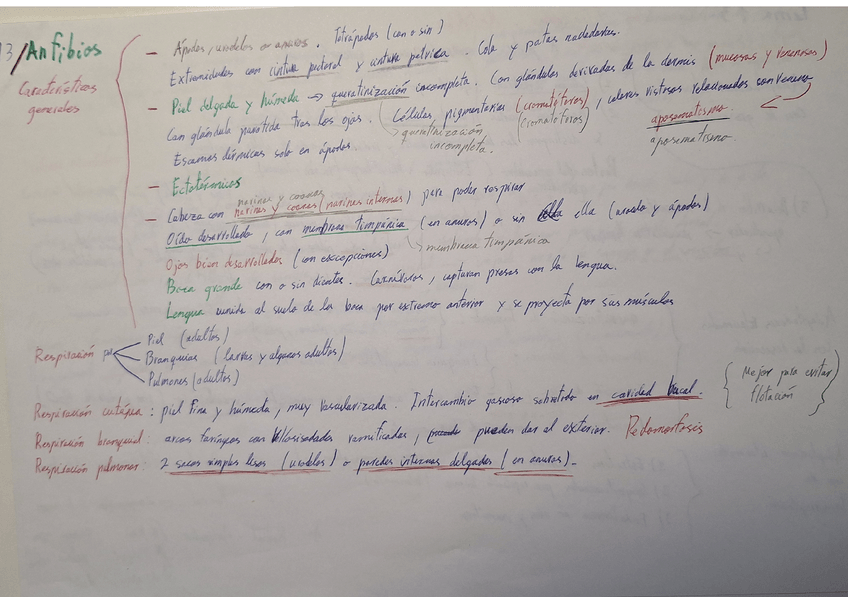 13/Anfibios
Características generales
- Ápodos, urodelos o anuros. Tetrápodos (con o sin)
Extremidades con cintura pectoral y cintura pélvica. Cola y patas nadadoras.
- Piel delgada y húmeda → queratinización incompleta. Con glándulas derivadas de la dermis (mucosas y venenosas)
→ queratinización incompleta.
Con glándula parótida tras los ojos. Células pigmentarias (cromatóforos), colores vistosos relacionados con veneno
(cromatóforos)
aposematismo
aposematismo.
Escamas dérmicas solo en ápodos.
- Ectotérmicos
narinas y coanas
- Cabeza con narinas y coanas (narinas internas) para poder respirar
Oído desarrollado, con membrana timpánica (en anuros) o sin ella (urodelo y ápodos)
→ membrana timpánica
Ojos bien desarrollados (con excepciones)
Boca grande con o sin dientes. Carnívoros, capturan presas con la lengua.
Lengua unida al suelo de la boca por extremo anterior y se proyecta por sus músculos
Respiración por
Piel (adultos)
Branquias (larvas y algunos adultos)
Pulmones (adultos)
Mejor para evitar flotación
Respiración cutánea: piel fina y húmeda, muy vascularizada. Intercambio gaseoso sobretodo en cavidad bucal.
Respiración branquial: arcos faríngeos con vellosidades ramificadas, pueden dar al exterior. Pedomorfosis
Respiración pulmonar: 2 sacos simples lisos (urodelos) o paredes internas delgadas (en anuros).